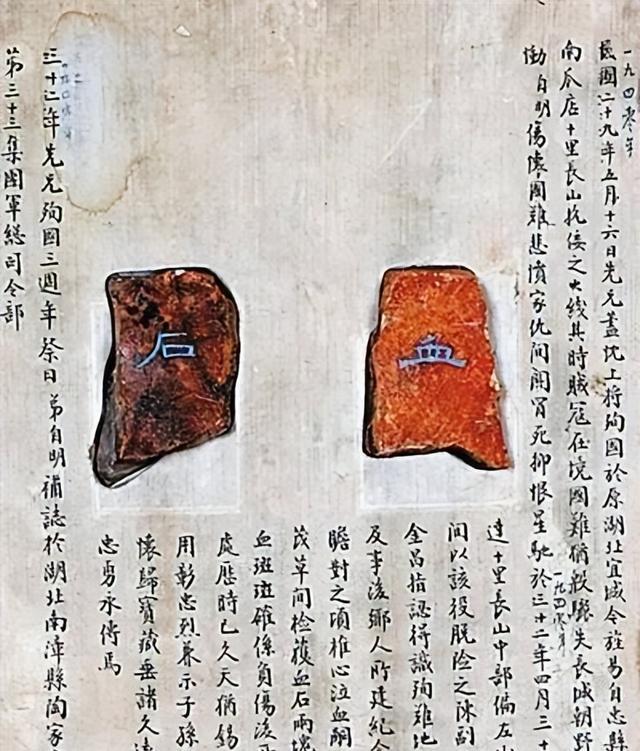 一九四零年
民國二十九年五月十六日先兄藎忱上將殉國於原湖北宜城今旌易自忠縣
南瓜店十里長山抗倭之火线其時賊寇在境國難猶殷驟失長城朝野
慟自明傷懷國難悲憤家仇间關冒死抑恨星馳於三十二年四月三
血
石
達十里長山中部偏左
间以該役脱险之陳副
全昌指認得識殉難地
及事後鄉人所建紀念
瞻對之頃椎心泣血酹
茂草间檢獲血石兩塊
血斑斑確係負傷後
處歷時已久天猶錫
用彰忠烈兼示子孫
懷歸寶藏垂諸久遠
忠勇永傳焉
三十二年先兄殉國三週年祭日弟自明補誌於湖北南漳縣陶家
第三十三集團軍總司令部